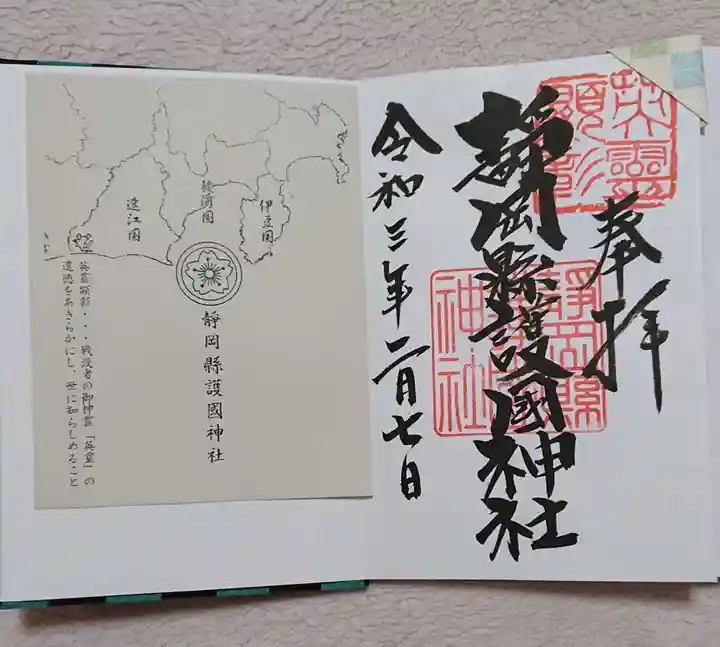 奉拝
英霊
顕彰
靜岡縣護國神社
靜岡縣
護國
神社
令和三年二月七日
伊豆国
駿河国
遠江国
靜岡縣護國神社
英霊顕彰・・・戦没者の御神霊「英霊」の
遺徳をあきらかにし、世に知らしめること